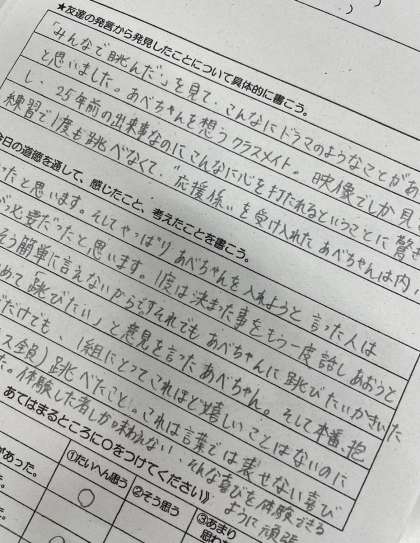 ★友達の発言から発見したことについて具体的に書こう。
「みんなで眺んだ」を見て、こんなにドラマのようなことがある
と思いました。あべちゃんを想うクラスメイト。映像でしか見
し、25年前の出来事なのにこんなに心を打たれるということに驚き
練習で1度も跳べなくて、"応援係"を受け入れたあべちゃんは内
今日の道徳を通して、感じたこと、考えたことを書こう。
ったと思います。そしてやっぱりあべちゃんを入れようと言った人は
が必要だったと思います。1度は決まった事をもう一度話しあおうと
そう簡単に言えないから。それでもあべちゃんに跳びたいかきいた
めて「跳びたい」と意見を言ったあべちゃん。そして本番、抱
だけでも、1組にとってこれほど嬉しいことはないのに
ス全員)跳べたこと。これは言葉では表せない喜び
た。体験した者しか味わえない、そんな喜びを体験できる
ように頑張
あてはまるところに○をつけてください》
①たいへん思う
②そう思う
③あまり
思わ
があった。
○
た。